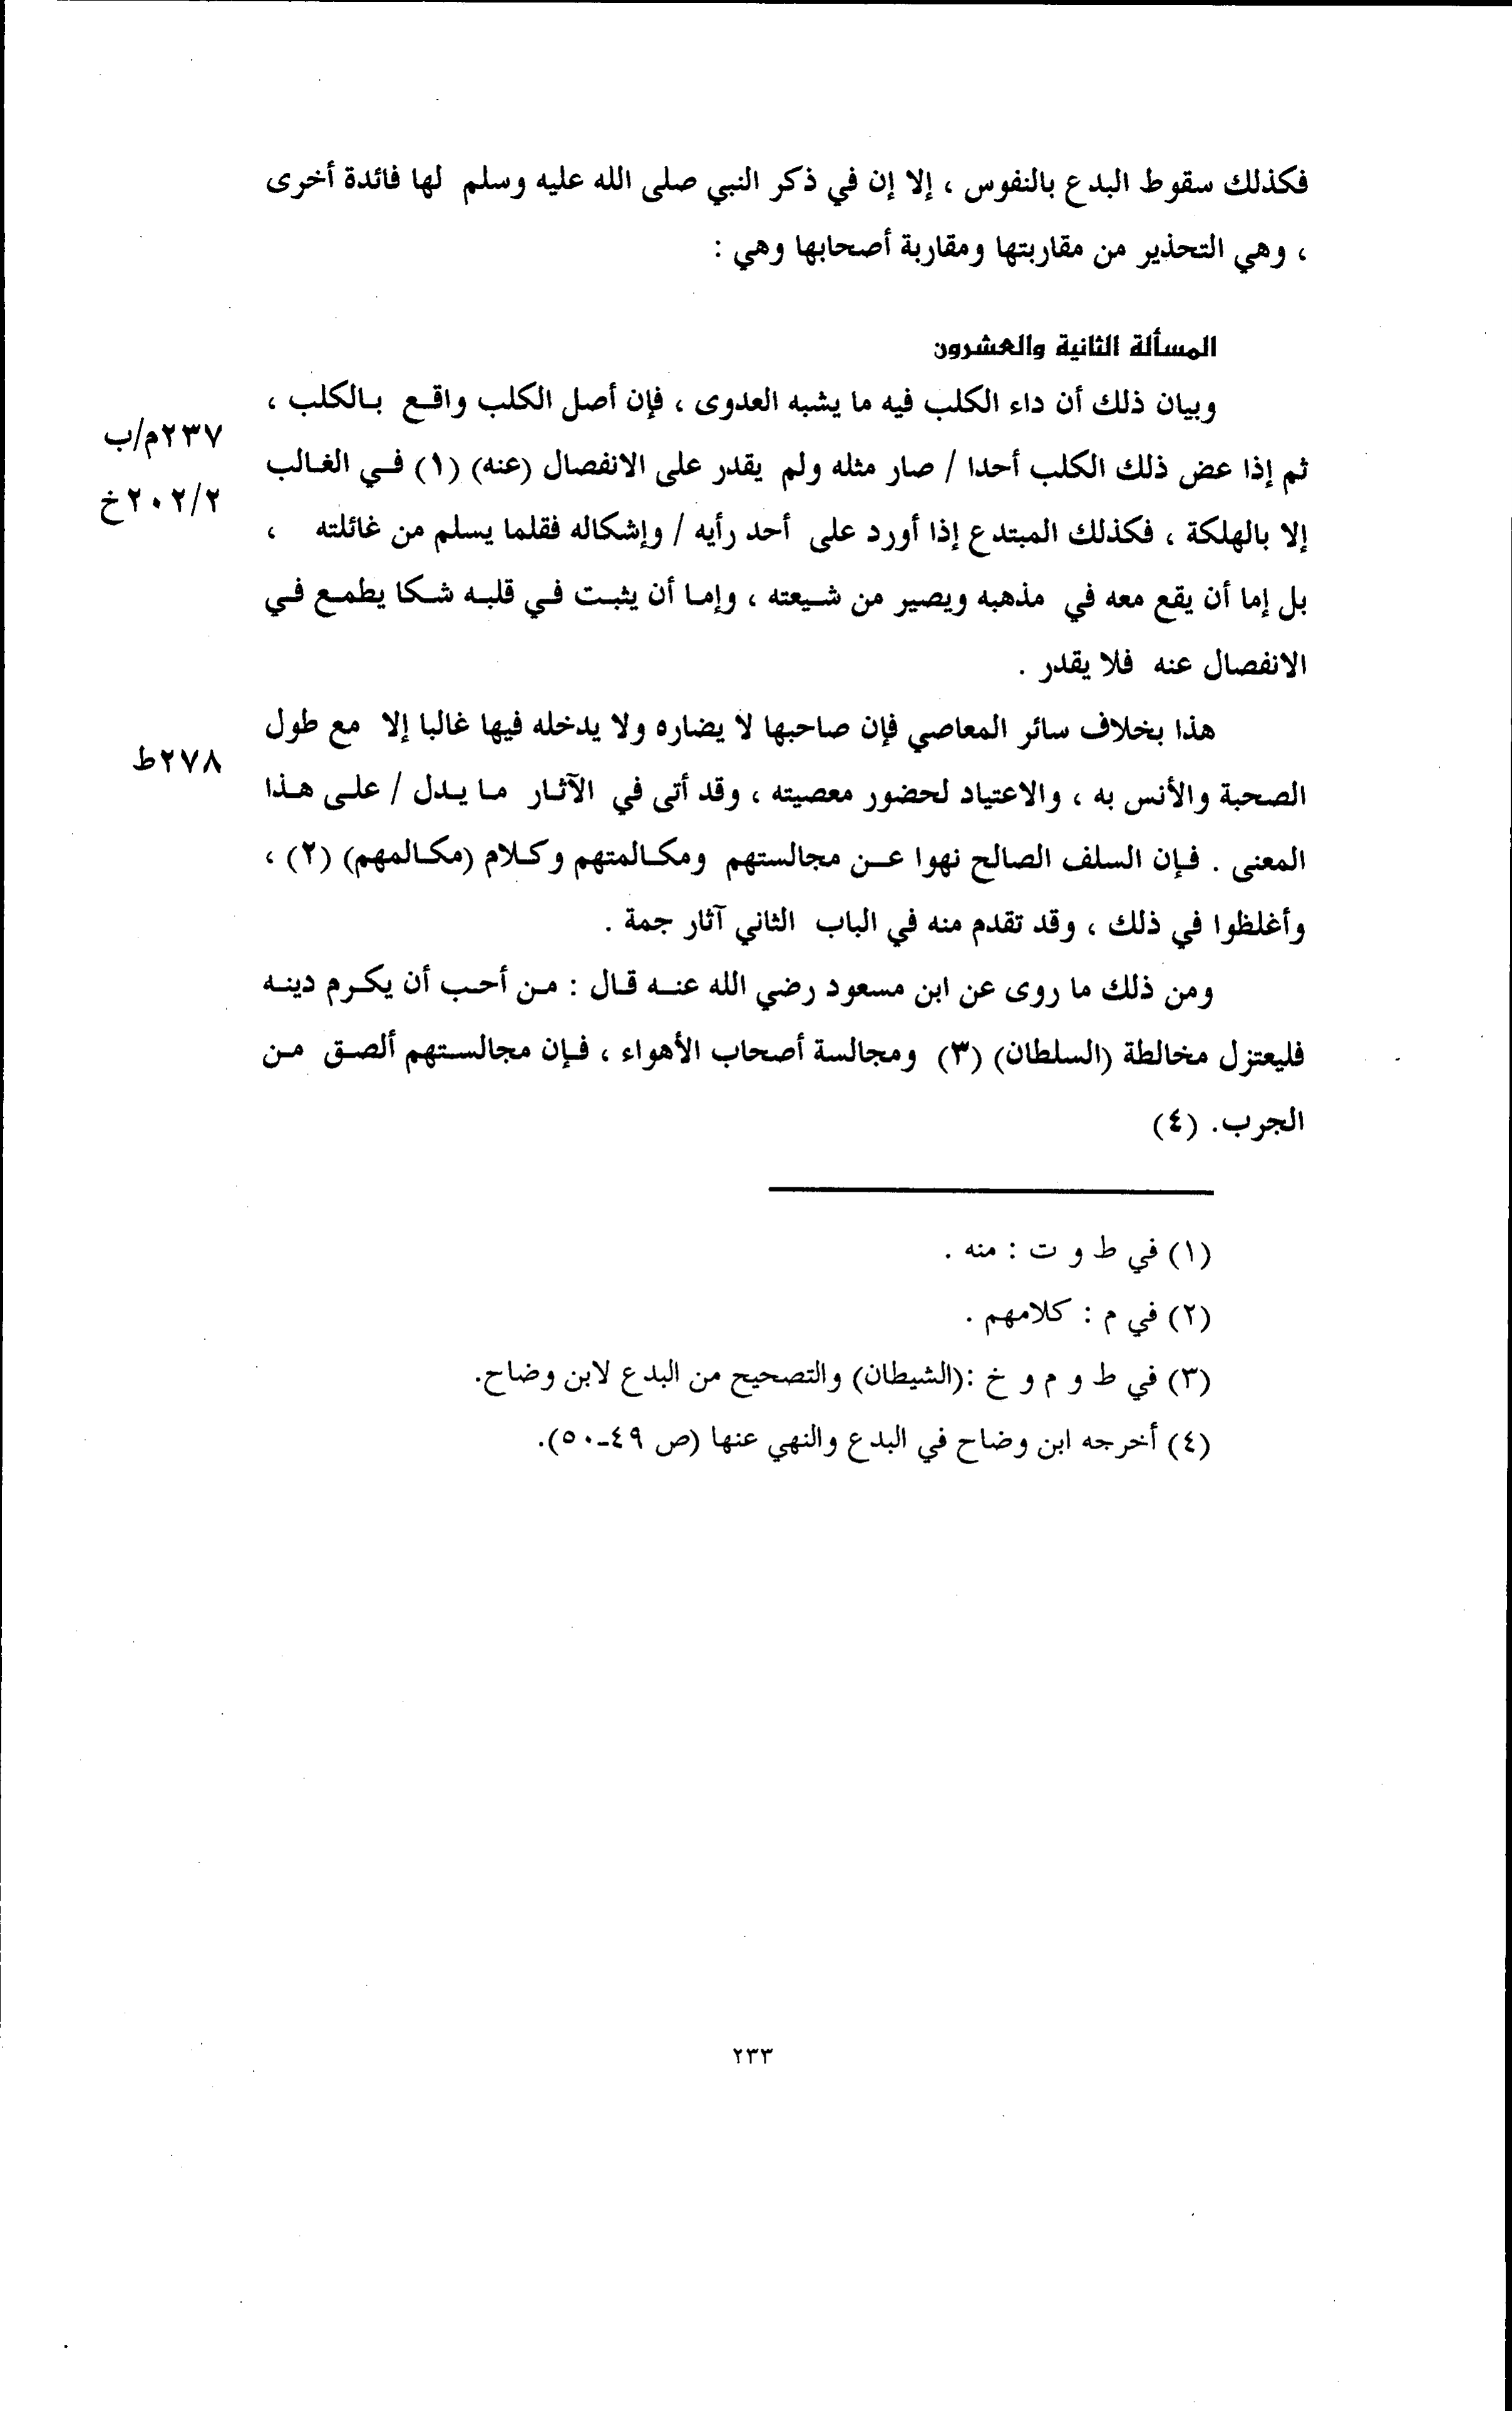 فكذلك سقوط البدع بالنفوس ، إلا إن في ذكر النبي صلى الله عليه وسلم لها فائدة أخرى
، وهي التحذير من مقاربتها ومقاربة أصحابها وهي :
المسألة الثانية والعشرون
وبيان ذلك أن داء الكلب فيه ما يشبه العدوى ، فإن أصل الكلب واقع بالكلب ،
٢٣٧م/ب
ثم إذا عض ذلك الكلب أحدا / صار مثله ولم يقدر على الانفصال (عنه) (١) في الغالب
٢٠٢/٢خ
إلا بالهلكة ، فكذلك المبتدع إذا أورد على أحد رأيه / وإشكاله فقلما يسلم من غائلته ،
بل إما أن يقع معه في مذهبه ويصير من شيعته ، وإما أن يثبت في قلبه شكا يطمع في
الانفصال عنه فلا يقدر .
هذا بخلاف سائر المعاصي فإن صاحبها لا يضاره ولا يدخله فيها غالبا إلا مع طول
٢٧٨ط
الصحبة والأنس به ، والاعتياد لحضور معصيته ، وقد أتى في الآثار ما يدل / على هذا
المعنى . فإن السلف الصالح نهوا عن مجالستهم ومكالمتهم وكلام (مكالمهم) (٢) ،
وأغلظوا في ذلك ، وقد تقدم منه في الباب الثاني آثار جمة .
ومن ذلك ما روى عن ابن مسعود رضي الله عنه قال : من أحب أن يكرم دينه
فليعتزل مخالطة (السلطان) (٣) ومجالسة أصحاب الأهواء ، فإن مجالستهم ألصق من
الجرب. (٤)
(١) في ط و ت : منه .
(٢) في م : كلامهم .
(٣) في ط و م و خ :(الشيطان) والتصحيح من البدع لابن وضاح.
(٤) أخرجه ابن وضاح في البدع والنهي عنها (ص ٤٩-٥٠).
٢٣٣